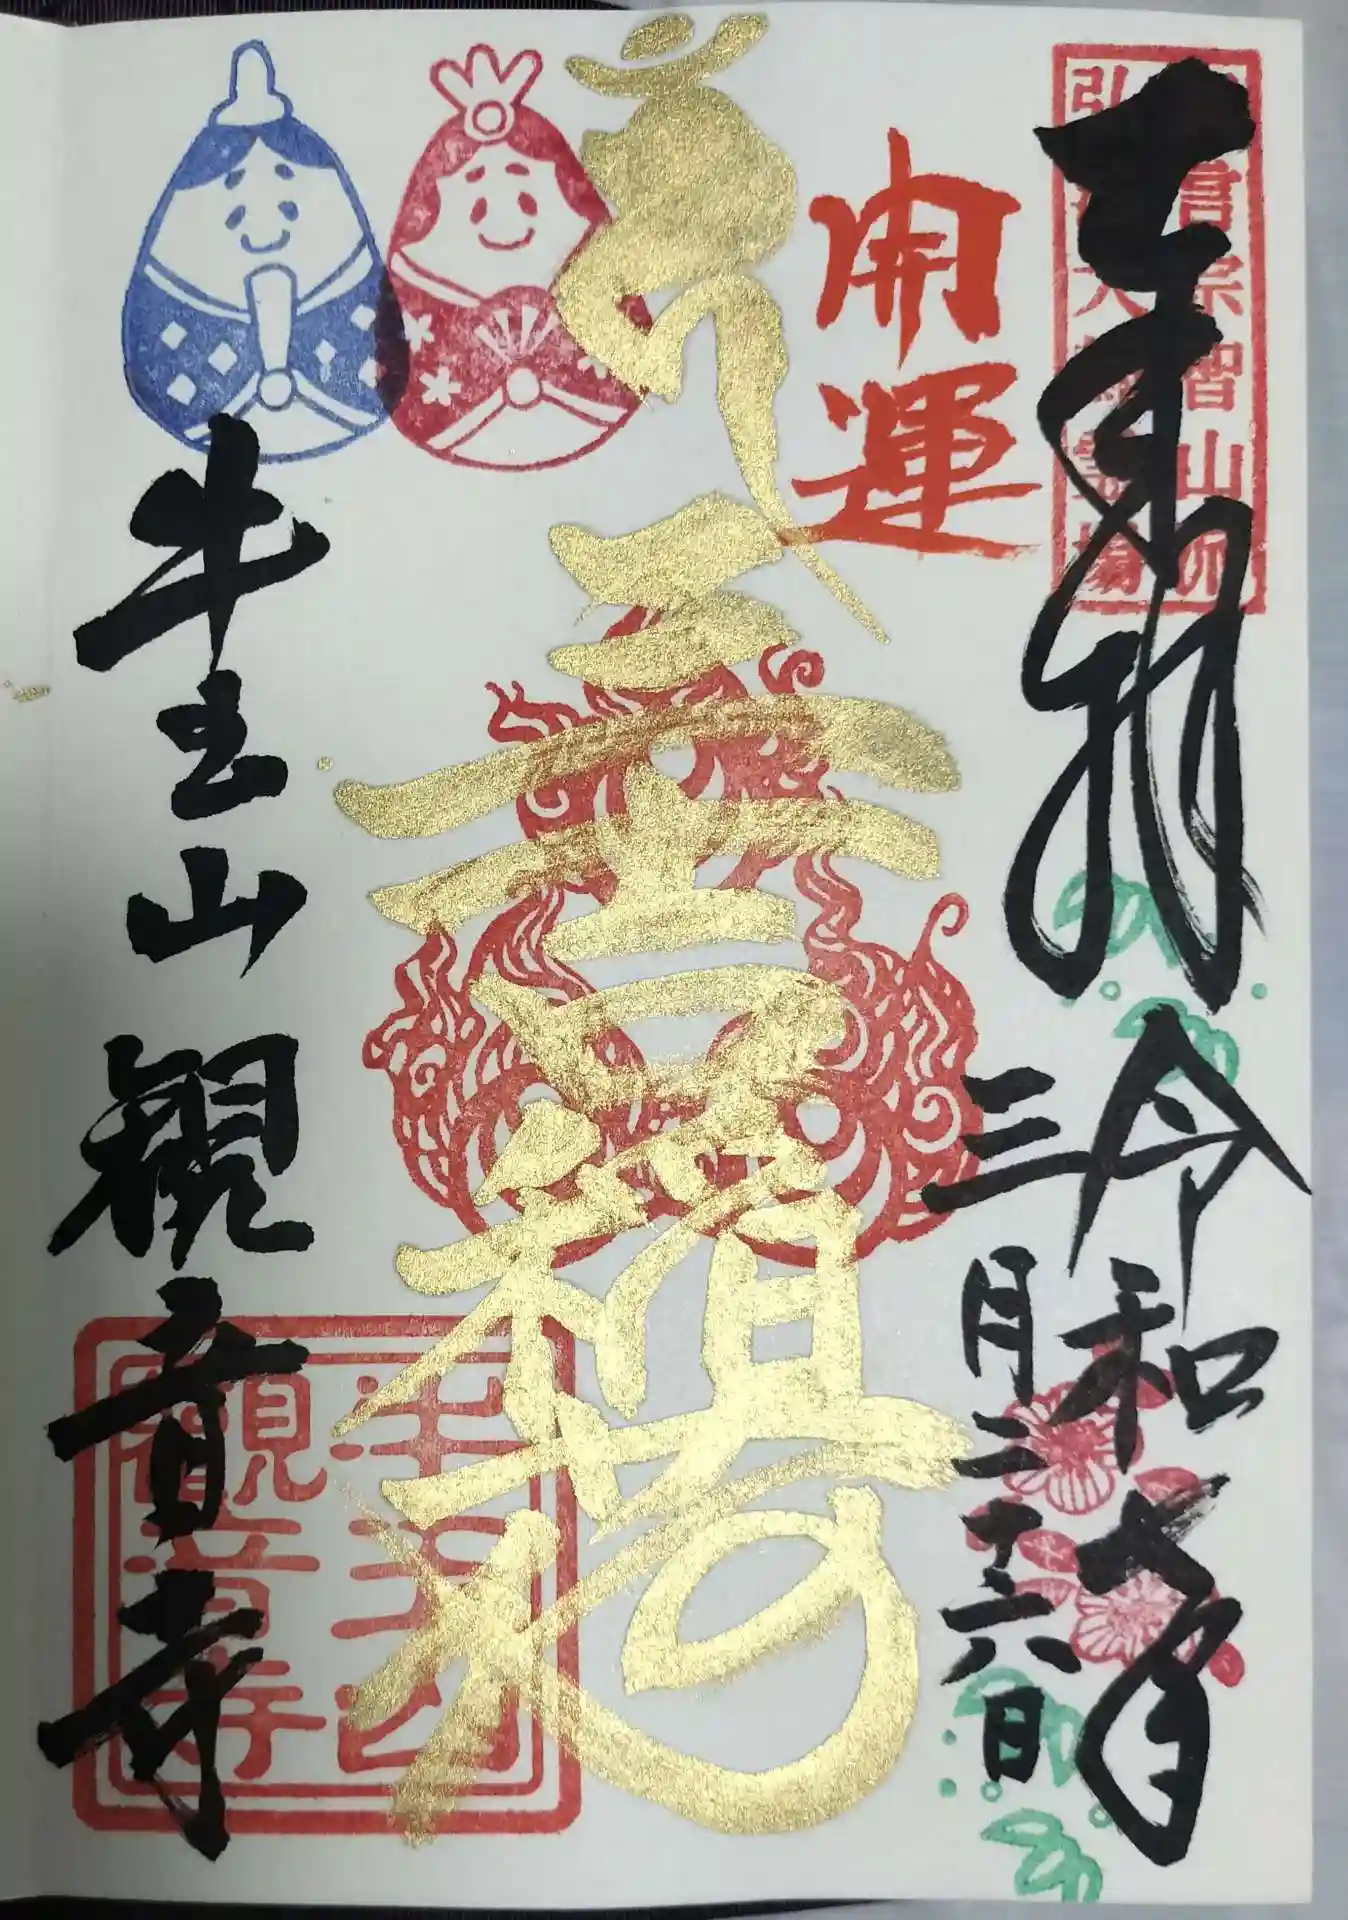 真言宗智山派
弘法大師霊場
奉拝
令和七年
三月二十六日
開運
牛玉山観音寺
牛玉山
観音寺